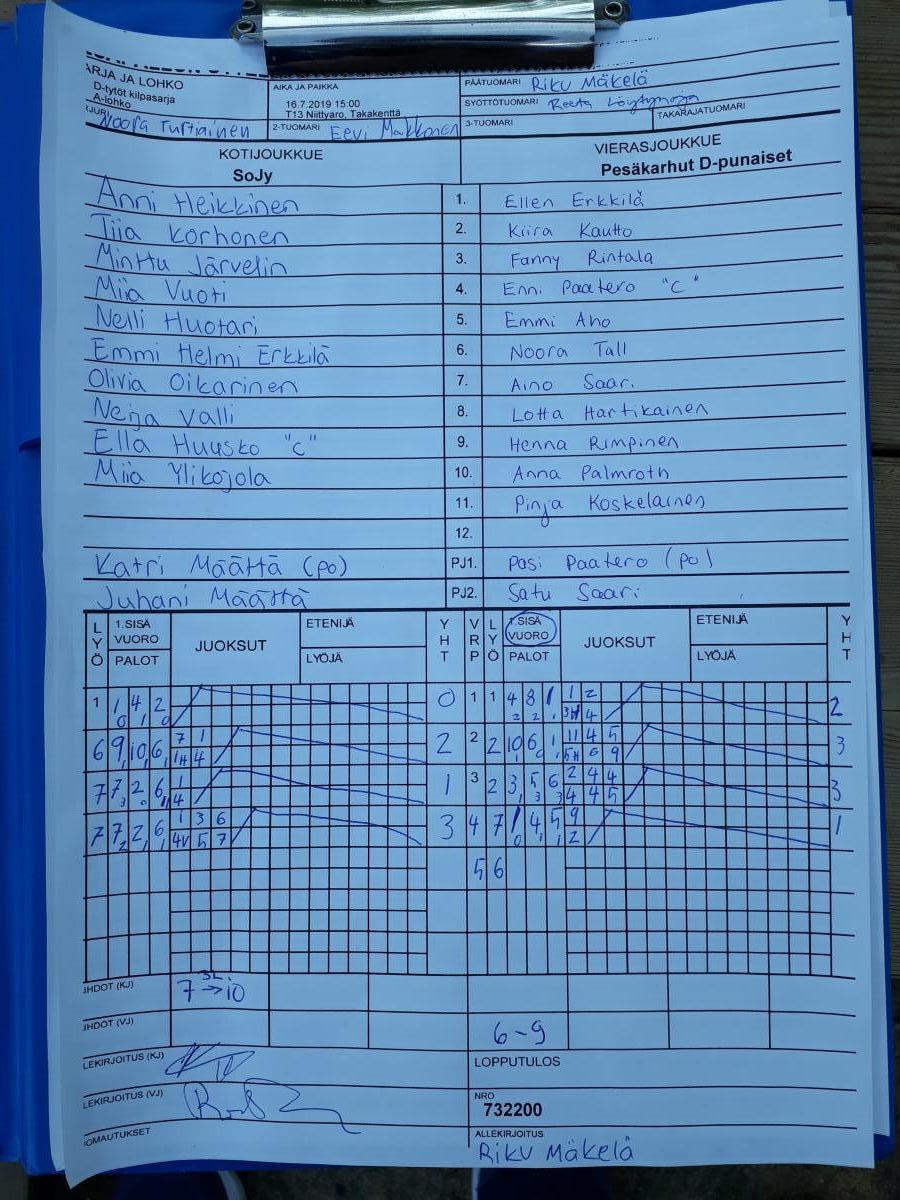 ARJA JA LOHKO
D-tytöt kilpasarja
A-lohko
AIKA JA PAIKKA
16.7.2019 15:00
T13 Niittyaro, Takakenttä
PÄÄTUOMARI Riku Mäkelä
SYÖTTÖTUOMARI Reeta Löytynoja
Noora Turtiainen
2-TUOMARI Eevi Makkonen
3-TUOMARI
TAKARAJATUOMARI
KOTIJOUKKUE
SoJy
VIERASJOUKKUE
Pesäkarhut D-punaiset
Anni Heikkinen 1. Ellen Erkkilä
Tiia Korhonen 2. Kiira Kautto
Minttu Järvelin 3. Fanny Rintala
Miia Vuoti 4. Enni Paatero "C"
Nelli Huotari 5. Emmi Aho
Emmi Helmi Erkkilä 6. Noora Tall
Olivia Oikarinen 7. Aino Saari
Neija Valli 8. Lotta Hartikainen
Ella Huusko "C" 9. Henna Rimpinen
Miia Ylikojola 10. Anna Palmroth
11. Pinja Koskelainen
12.
Katri Määttä (po) PJ1. Pasi Paatero (po)
Juhani Määttä PJ2. Satu Saari
LYÖ 1.SISÄ VUORO PALOT JUOKSUT ETENIJÄ LYÖJÄ YHT VRP LYÖ 1.SISÄ VUORO PALOT JUOKSUT ETENIJÄ LYÖJÄ YHT
1 1 4 2 0 1 1 4 8 1 1 2 2
0 1 0 2 2 1 3H 4
6 9 10 6 7 1 2 2 2 10 6 1 11 4 5 3
1H 4 5H 6 9
7 7 2 6 1 1 3 2 3 5 6 2 4 4 3
3 0 1 4 3 3 4 4 5
7 7 2 6 1 3 6 3 4 7 1 4 5 9 1
2 1 1 4V 5 7 0 1 1 2
5 6
HDOT (KJ) 7 → 10
HDOT (VJ) 6-9
LEKIRJOITUS (KJ)
LOPPUTULOS
LEKIRJOITUS (VJ)
NRO
732200
OMAUTUKSET
ALLEKIRJOITUS
Riku Mäkelä